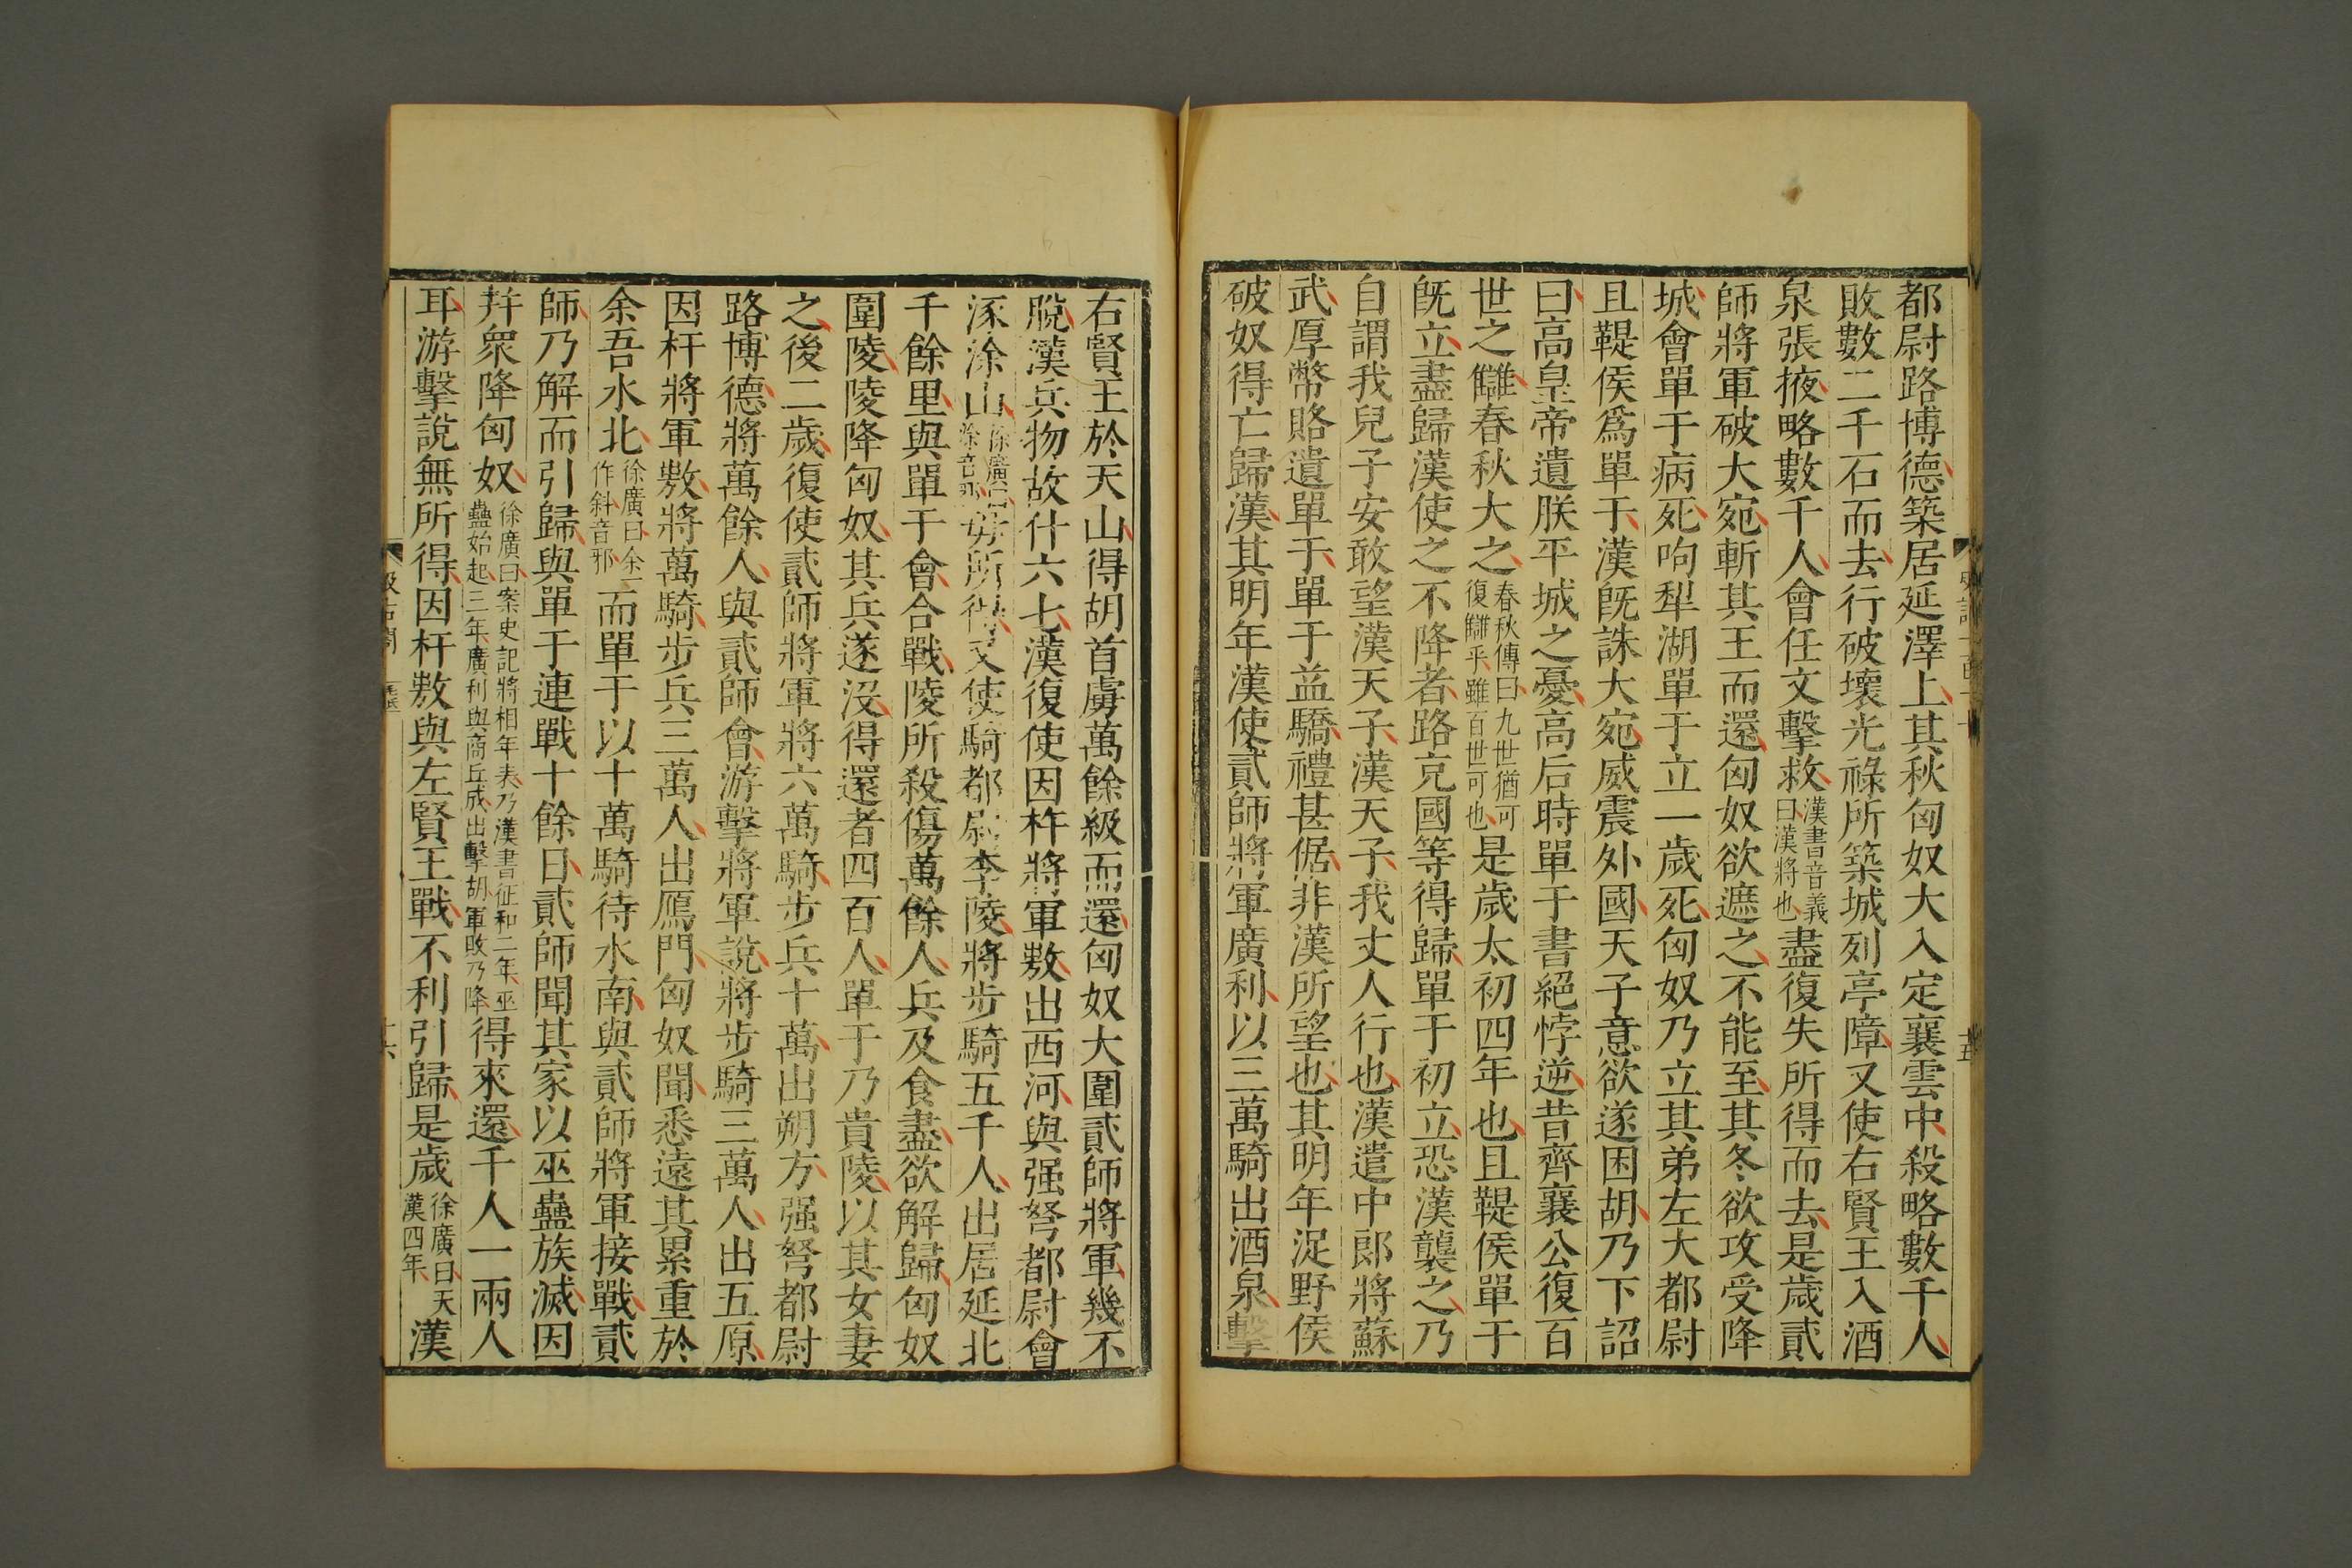 都尉路博德築居延澤上其秋匈奴大入定襄雲中殺略數千人
敗數二千石而去行破壞光祿所築城列亭障又使右賢王入酒
泉張掖略數千人會任文擊救漢書音義曰漢將也盡復失所得而去是歲貳
師將軍破大宛斬其王而還匈奴欲遮之不能至其冬欲攻受降
城會單于病死呴犁湖單于立一歲死匈奴乃立其弟左大都尉
且鞮侯爲單于漢旣誅大宛威震外國天子意欲遂困胡乃下詔
曰高皇帝遺朕平城之憂高后時單于書絕悖逆昔齊襄公復百
世之讎春秋大之春秋傳曰九世猶可復讎乎雖百世可也是歲太初四年也且鞮侯單于
旣立盡歸漢使之不降者路充國等得歸單于初立恐漢襲之乃
自謂我兒子安敢望漢天子漢天子我丈人行也漢遣中郎將蘇
武厚幣賂遺單于單于益驕禮甚倨非漢所望也其明年浞野侯
破奴得亡歸漢其明年漢使貳師將軍廣利以三萬騎出酒泉擊
右賢王於天山得胡首虜萬餘級而還匈奴大圍貳師將軍幾不
脫漢兵物故什六七漢復使因杅將軍敖出西河與强弩都尉會
涿涂山徐廣曰涂音邪毋所得又使騎都尉李陵將步騎五千人出居延北
千餘里與單于會合戰陵所殺傷萬餘人兵及食盡欲解歸匈奴
圍陵陵降匈奴其兵遂沒得還者四百人單于乃貴陵以其女妻
之後二歲復使貳師將軍將六萬騎步兵十萬出朔方强弩都尉
路博德將萬餘人與貳師會游擊將軍說將步騎三萬人出五原
因杅將軍敖將萬騎步兵三萬人出鴈門匈奴聞悉遠其累重於
余吾水北徐廣曰余一作斜音邪而單于以十萬騎待水南與貳師將軍接戰貳
師乃解而引歸與單于連戰十餘日貳師聞其家以巫蠱族滅因
幷衆降匈奴徐廣曰案史記將相年表乃漢書征和二年巫蠱始起三年廣利與商丘成出擊胡軍敗乃降得來還千人一兩人
耳游擊說無所得因杅敖與左賢王戰不利引歸是歲徐廣曰天漢四年漢
十五
汲古閣
十六